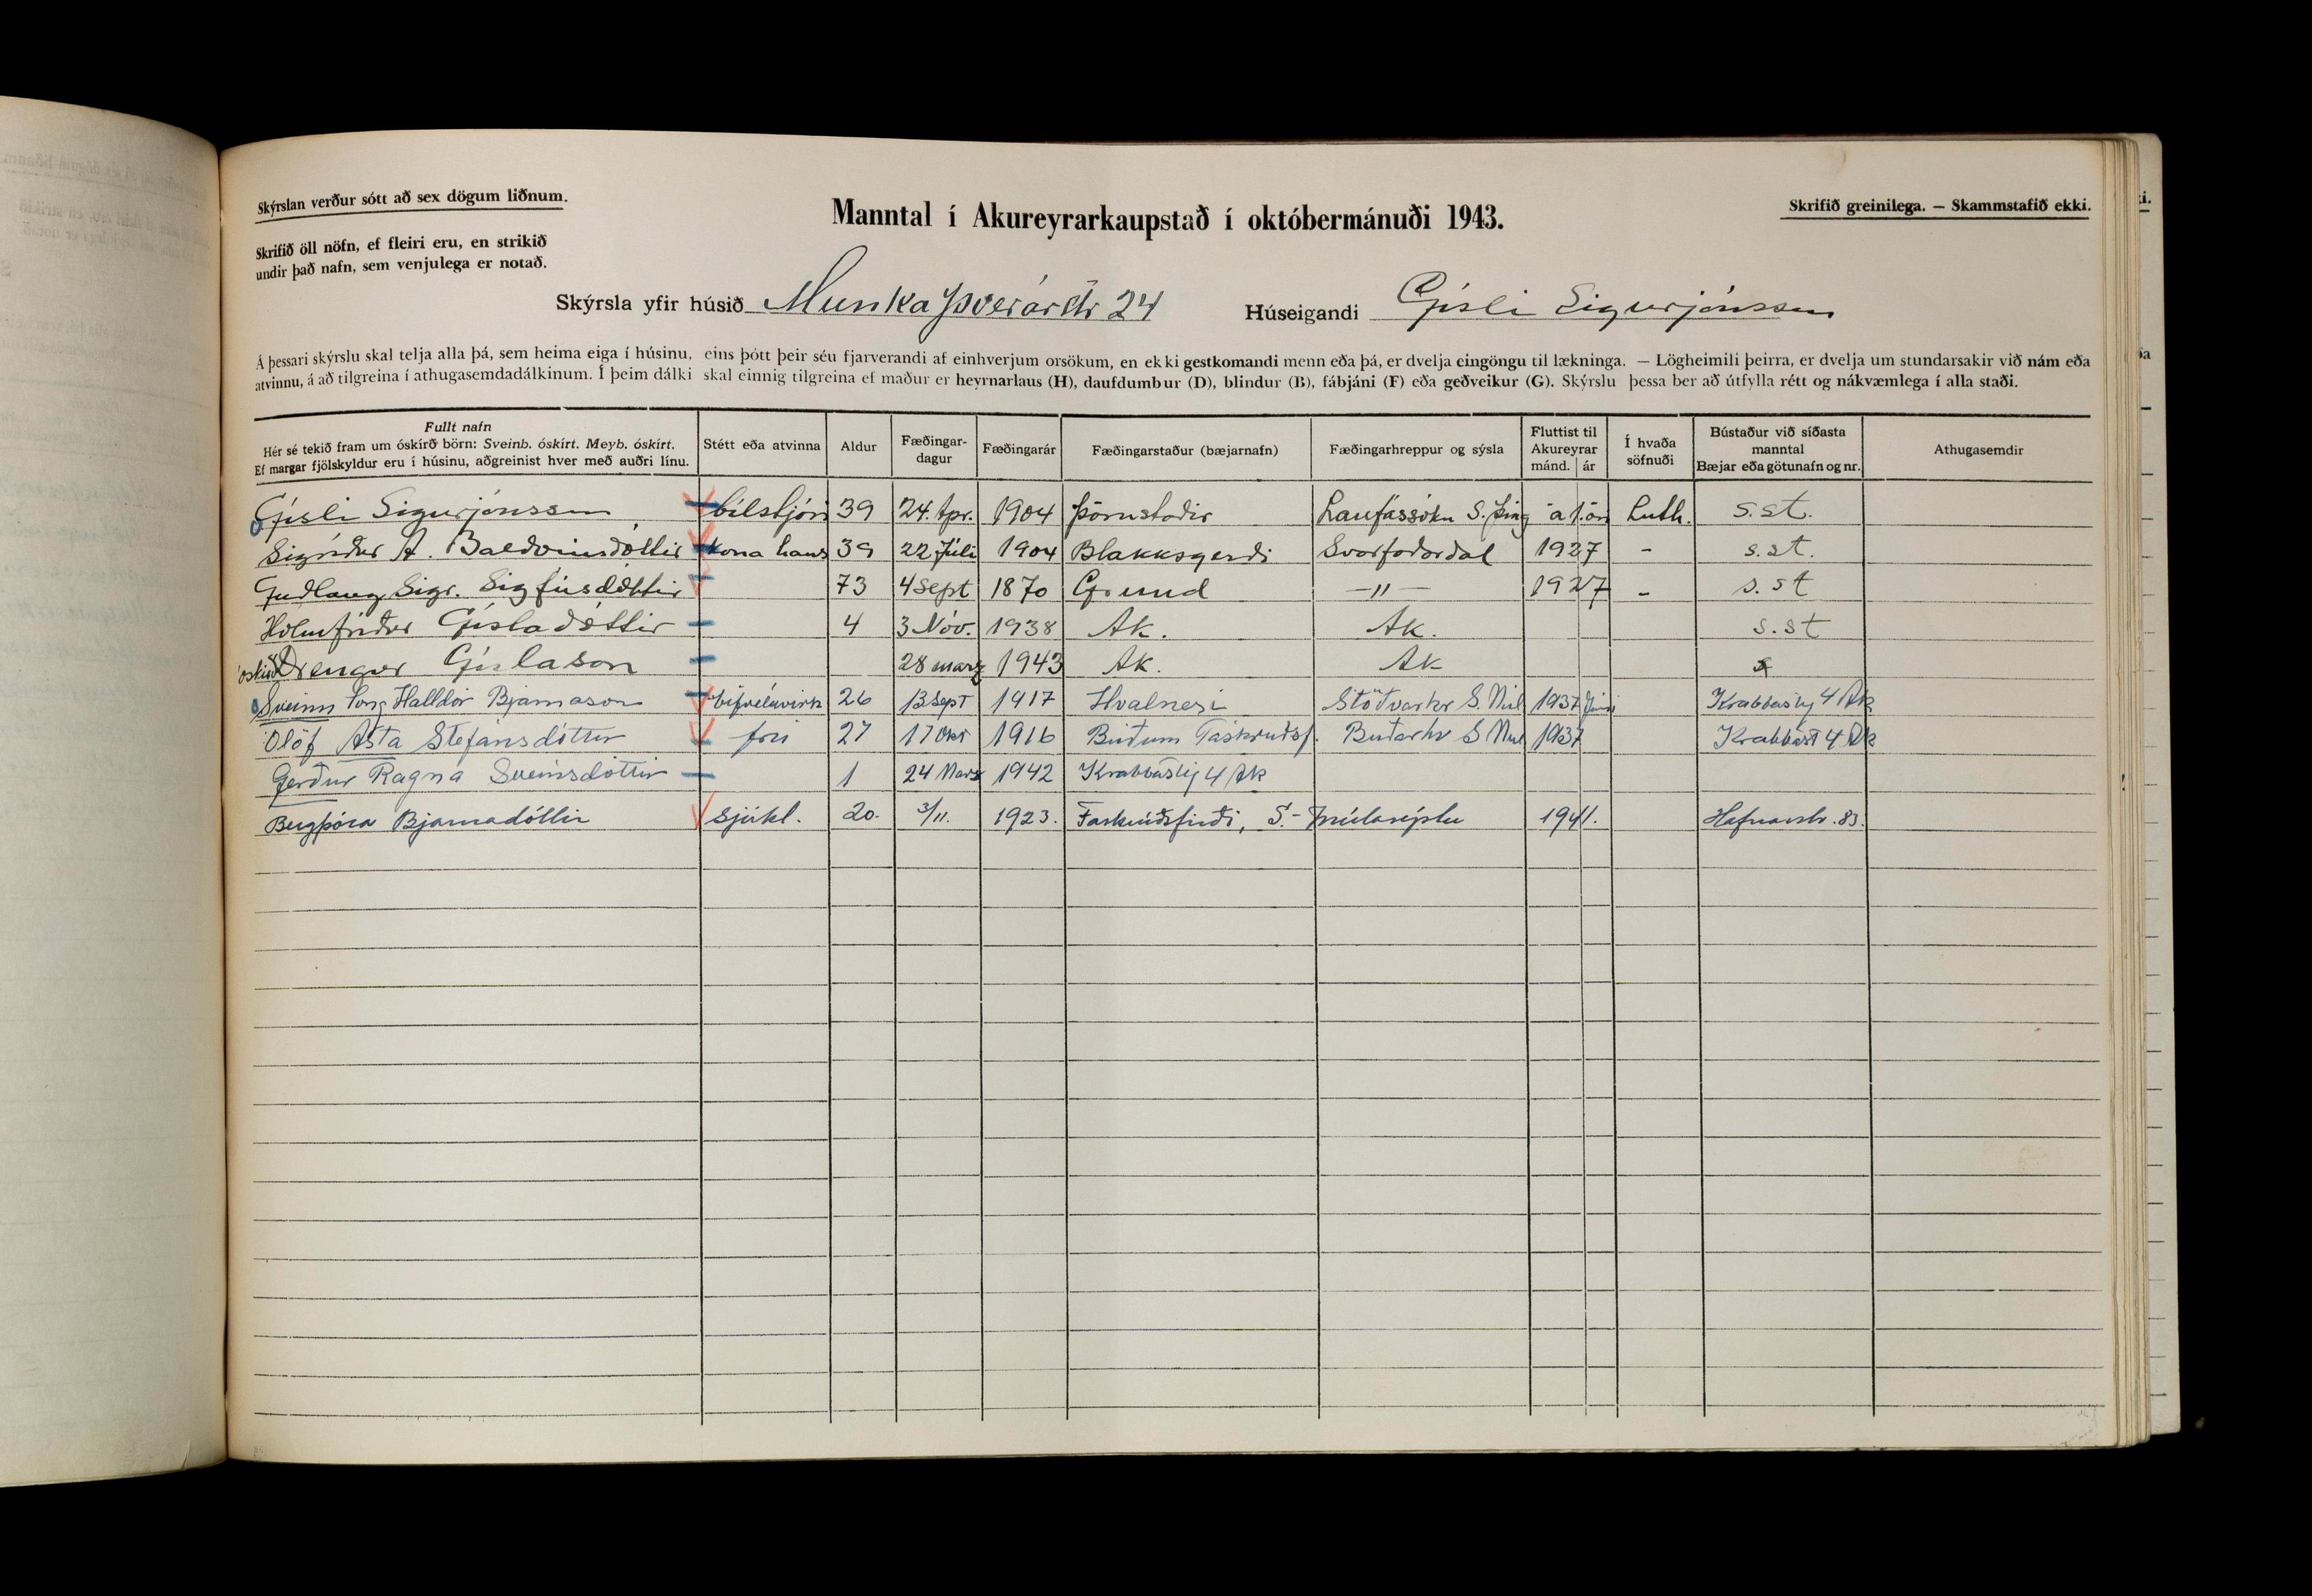 Skýrslan verður sótt að sex dögum liðnum.
Skrifið öll nöfn, ef fleiri eru, en strikið
undir það nafn, sem venjulega er notað.
Manntal í Akureyrarkaupstað í októbermánuði 1943.
Skrifið greinilega. — Skammstafið ekki.
Skýrsla yfir húsið Munkaþverárstr 24 Húseigandi Gísli Sigurjónsson
Á þessari skýrslu skal telja alla þá, sem heima eiga í húsinu, eins þótt þeir séu fjarverandi af einhverjum orsökum, en ekki gestkomandi menn eða þá, er dvelja eingöngu til lækninga. — Lögheimili þeirra, er dvelja um stundarsakir við nám eða
atvinnu, á að tilgreina í athugasemdadálkinum. Í þeim dálki skal einnig tilgreina ef maður er heyrnarlaus (H), daufdumbur (D), blindur (B), fábjáni (F) eða geðveikur (G). Skýrslu þessa ber að útfylla rétt og nákvæmlega í alla staði.
Fullt nafn
Hér sé tekið fram um óskírð börn: Sveinb. óskírt. Meyb. óskírt.
Ef margar fjölskyldur eru í húsinu, aðgreinist hver með auðri línu.
Stétt eða atvinna
Aldur
Fæðingar-
dagur
Fæðingarár
Fæðingarstaður (bæjarnafn)
Fæðingarhreppur og sýsla
Fluttist til
Akureyrar
mánd. ár
Í hvaða
söfnuði
Bústaður við síðasta
manntal
Bæjar eða götunafn og nr.
Athugasemdir
Gísli Sigurjónsson bílstjóri 39 24. Apr. 1904 Þórnstaðir Laufássókn S. Þing á 1. ári Luth. s.st.
Sigríður A. Baldvinsdóttir kona hans 39 22 Júli 1904 Blakksgerði Svarfaðardal 1927 - s.st.
Guðlaug Sigr. Sigfúsdóttir 73 4 Sept 1870 Grund —"— 1927 - s.st
Hólmfríður Gísladóttir 4 3 Nóv. 1938 Ak. Ak. s.st
óskírð Drengur Gíslason 28 marz 1943 Ak. Ak
Sveinn Halldór Bjarnason bifvélavirk 26 13 Sept 1917 Hvalnesi Stöðvarhr S. Múl 1937 Júni Krabbastíg 4 Ak
Olöf Asta Stefánsdóttir frú 27 17 Okt 1916 Buðum Fáskruðsf. Buðarhr S Múl 1937 Krabbast 4 Ak
Gerður Ragna Sveinsdóttir 1 24 Mars 1942 Krabbastíg 4 Ak
Bergþóra Bjarnadóttir Sjúkl. 20. 3/11. 1923. Fáskrúðsfirði, S.-Múlasýslu 1941. Hafnarstr. 83.